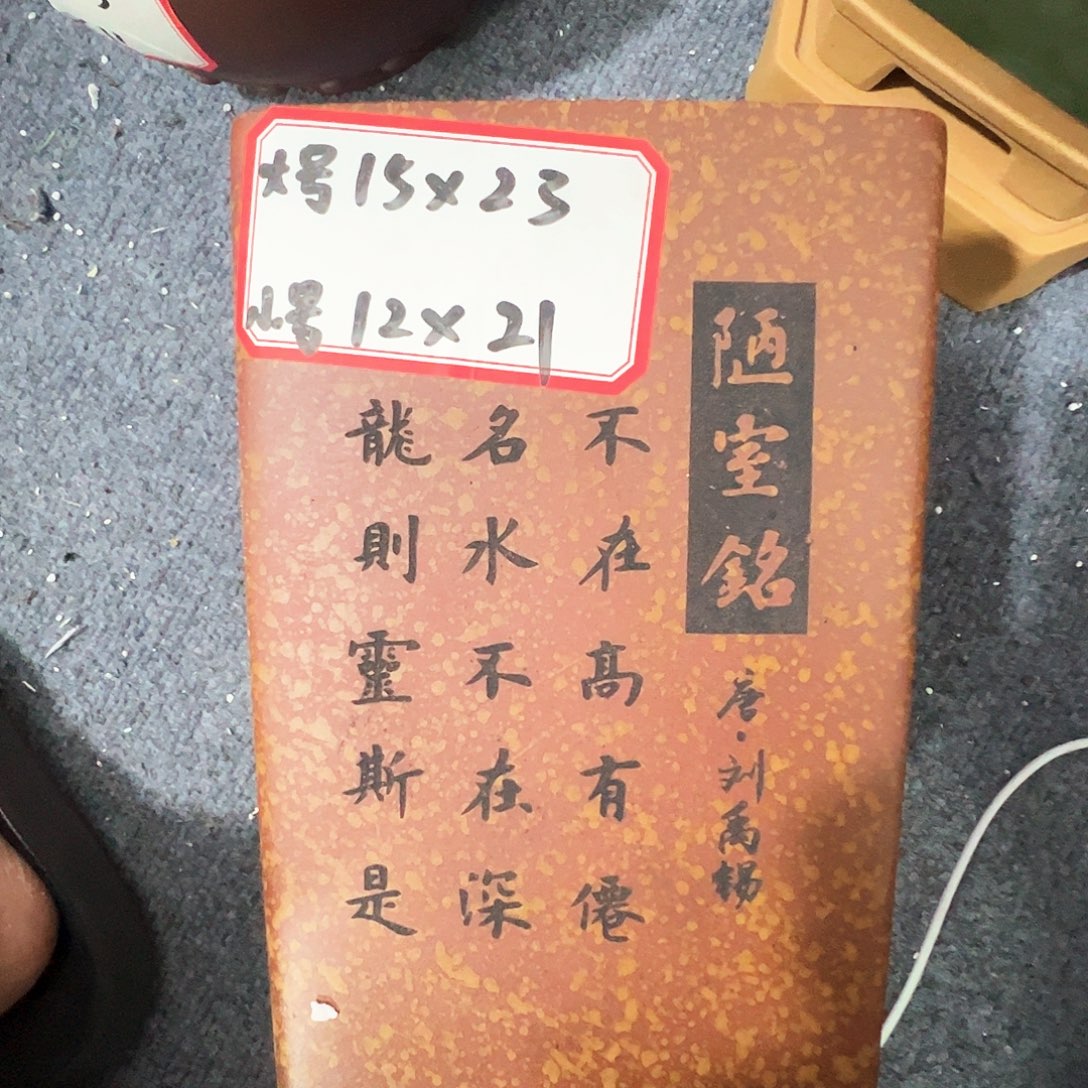 大号 15×23
小号 12×21
陋室銘
唐·刘禹锡
不在高有僊
名水不在深
龍則靈斯是